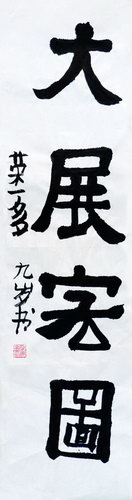 大展宏图
英一多
九岁书